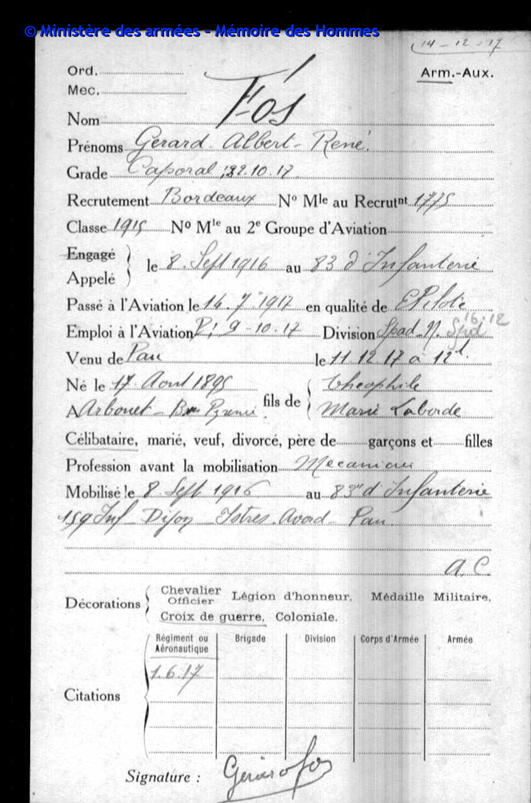 © Ministère des armées - Mémoire des Hommes
14-12-17
Ord.
Arm.-Aux.
Mec.
Nom Fós
Prénoms Gerard. Albert-René.
Grade Caporal 22.10.17
Recrutement Bordeaux Nº Mle au Recrutnt 1775
Classe 1915 Nº Mle au 2e Groupe d'Aviation
Engagé
Appelé
le 8. Sept 1916 au 83 d'Infanterie
Passé à l'Aviation le 14.7.1917 en qualité de E Pilote
Emploi à l'Aviation P; 9-10-17 Division Spad. N. Spd 16.12
Venu de Pau le 11.12.17 a 12h.
Né le 17. Aout 1895
A Arbouet - Bses Pyrenées
fils de
Théophile
Marie Laborde
Célibataire, marié, veuf, divorcé, père de garçons et filles
Profession avant la mobilisation Mecanicien
Mobilisé le 8 Sept 1916 au 83e d'Infanterie
159 Inf Dijon Istres. Avord. Pau.
A.C
Décorations
Chevalier
Officier
Légion d'honneur, Médaille Militaire,
Croix de guerre, Coloniale.
Citations
Régiment ou Aéronautique Brigade Division Corps d'Armée Armée
1.6.17
Signature :